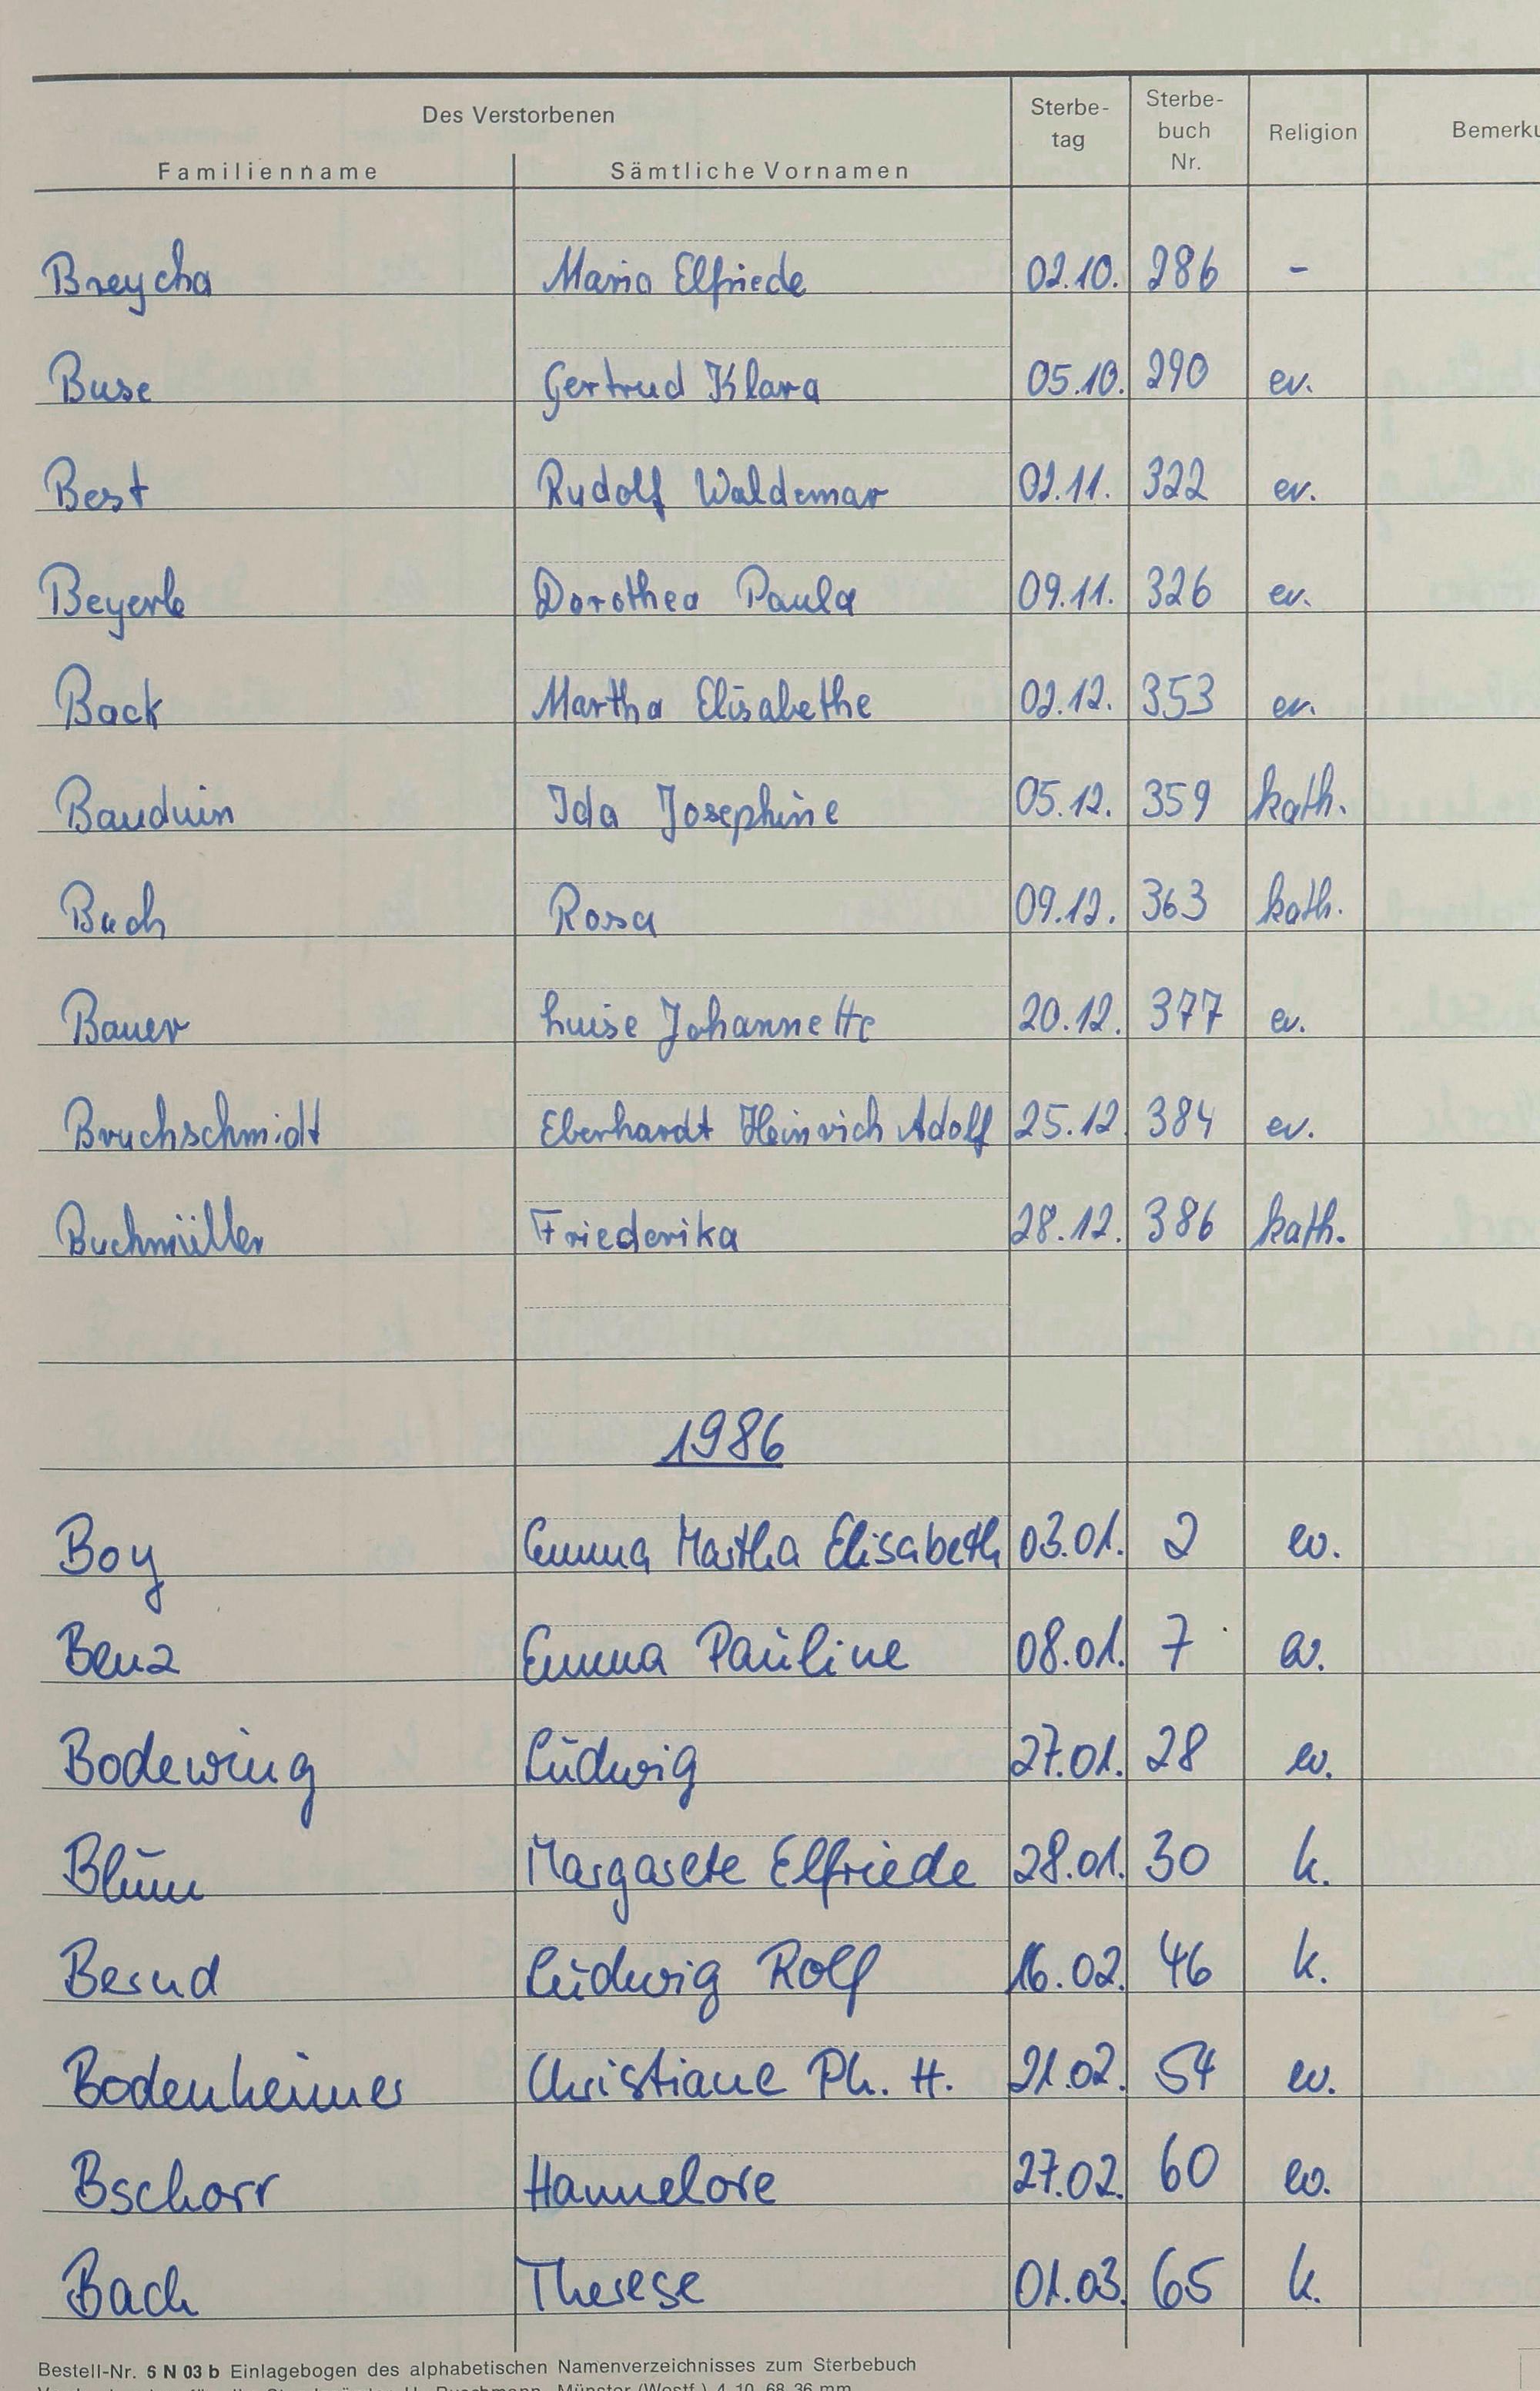 Des Verstorbenen
Familienname Sämtliche Vornamen Sterbe-tag Sterbe-buch Nr. Religion Bemerku
Breycha Maria Elfriede 02.10. 286 -
Buse Gertrud Klara 05.10. 290 ev.
Best Rudolf Waldemar 02.11. 322 ev.
Beyerle Dorothea Paula 09.11. 326 ev.
Back Martha Elisabethe 02.12. 353 ev.
Bauduin Ida Josephine 05.12. 359 kath.
Buch Rosa 09.12. 363 kath.
Bauer Luise Johannette 20.12. 377 ev.
Bruchschmidt Eberhardt Heinrich Adolf 25.12. 384 ev.
Buchmüller Friederika 28.12. 386 kath.
1986
Boy Emma Martha Elisabeth 03.01. 2 ev.
Benz Emma Pauline 08.01. 7 ev.
Bodewing Ludwig 27.01. 28 ev.
Blum Margarete Elfriede 28.01. 30 k.
Bernd Ludwig Rolf 16.02. 46 k.
Bodenheimer Christiane Ph. H. 21.02. 54 ev.
Bschorr Hannelore 27.02. 60 ev.
Bach Therese 01.03. 65 k.
Bestell-Nr. S N 03 b Einlagebogen des alphabetischen Namenverzeichnisses zum Sterbebuch
Münster (Westf.) 4. 10. 68. 36 mm